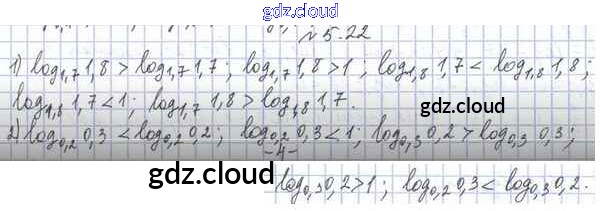 gdz.cloud
№5.22
1) log₁,₇1,8 > log₁,₇1,7; log₁,₇1,8>1; log₁,₈1,7 < log₁,₈1,8;
log₁,₈1,7<1; log₁,₇1,8>log₁,₈1,7.
gdz.cloud
2) log₀,₂0,3 < log₀,₂0,2; log₀,₂0,3<1; log₀,₃0,2 > log₀,₃0,3;
-4-
gdz.cloud
gdz.cloud
log₀,₃0,2>1; log₀,₂0,3 < log₀,₃0,2.
gdz.cloud